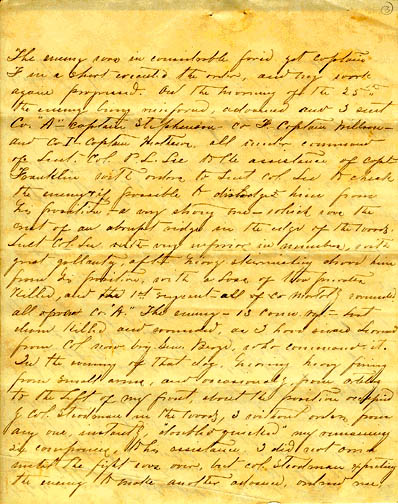 3
The enemy was in considerable force, yet Captain
F in a short executed the orders, and our work
again progressed. On the morning of the 25th
the enemy being reinforced, advanced and I sent
Co. "A" - Captain Stephenson - Co F. Captain
and Co I - Captain all under command
of Lieut. Col. P. L. Lee to the assistance of Capt
Franklin with orders to Lieut Col Lee to check
the enemy & if possible to dislodge him from
his position - a very strong one - which was the
crest of an abrupt ridge in the edge of the woods.
Lieut Col Lee with very inferior in numbers, with
great gallantry after heavy skirmishing drove him
from his position, with a loss of two privates
killed, and one 1st sergeant - all of Co wounded
all of Co. "A" The enemy - 13 Conn. regt - lost
killed and wounded, as I have since learned
from Col now Brig Gen. Birge, who commanded it.
In the evening of that day, hearing heavy firing
from small arms, and occasionally from artillery
to the left of my front, about the position occupied
by Col Steedman in the woods, I without orders from
any one, instantly "doubled quicked" my remaining
six companies to his assistance, I did not arrive
until the fight was over, but Col. Steedman expecting
the enemy to make another advance,